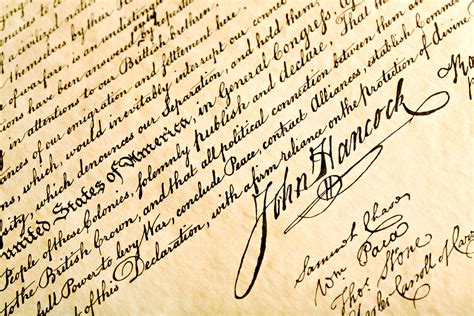 themselves by their
of warfare, is an
ions have been answered
attentions to our British brethren
ces of our emigration and settlement here
ons, which, would inevitably interrupt our connect
sity, which denounces our Separation, and hold them
united States of America, in General Congress,
People of these Colonies, solemnly publish and declare, That
to the British Crown, and that all political connection between them an
full Power to levy War, conclude Peace, contract Alliances, establish Comme
t of this Declaration, with a firm reliance on the protection of divine
John Hancock
Samuel Chase
Wm Paca
Thos Stone
Charles Carroll of Carro